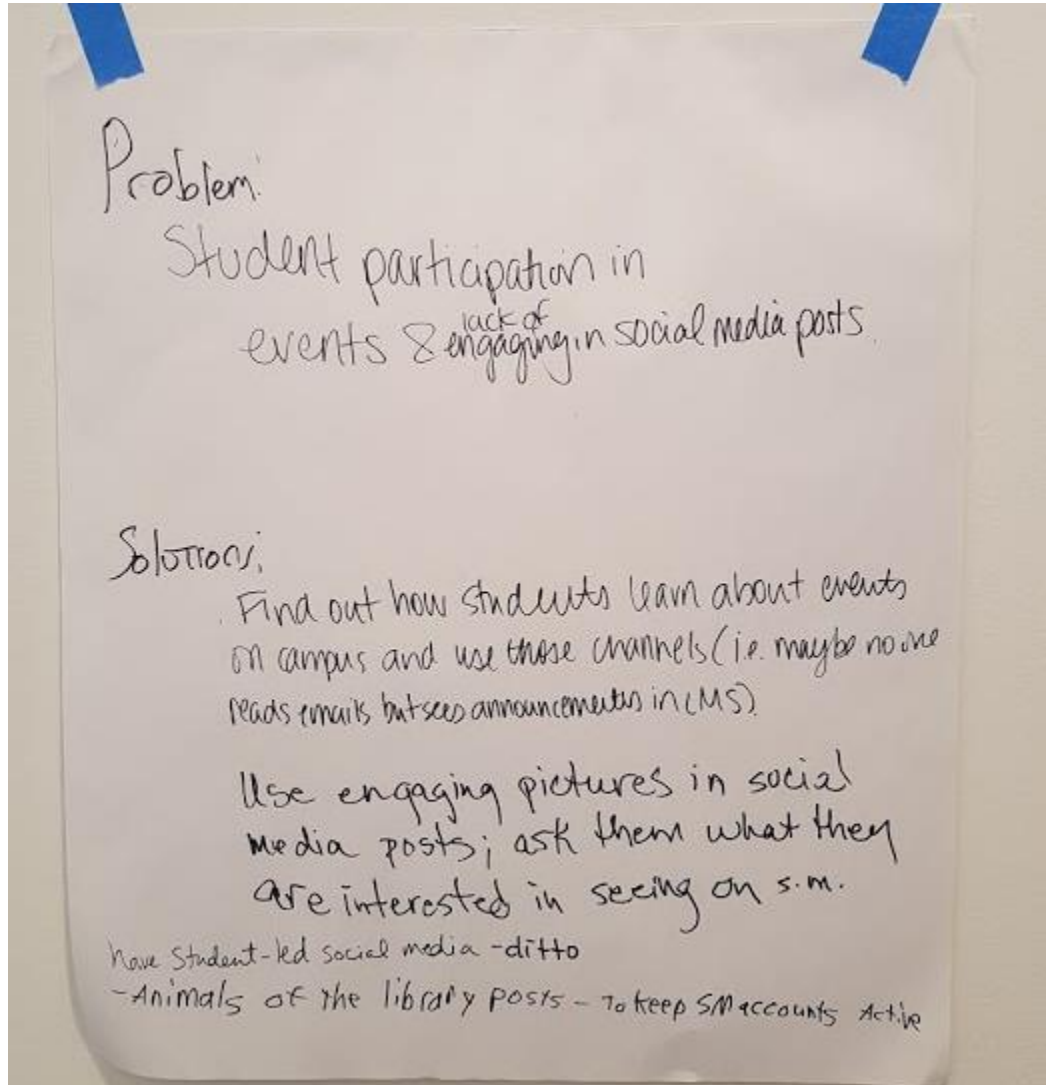 Problem:
Student participation in
events & lack of engaging in social media posts.
Solutions:
. Find out how students learn about events
on campus and use those channels (i.e. maybe no one
reads emails but sees announcements in LMS).
Use engaging pictures in social
media posts; ask them what they
are interested in seeing on s.m.
have Student-led social media - ditto
- Animals of the library posts - To keep SM accounts Active